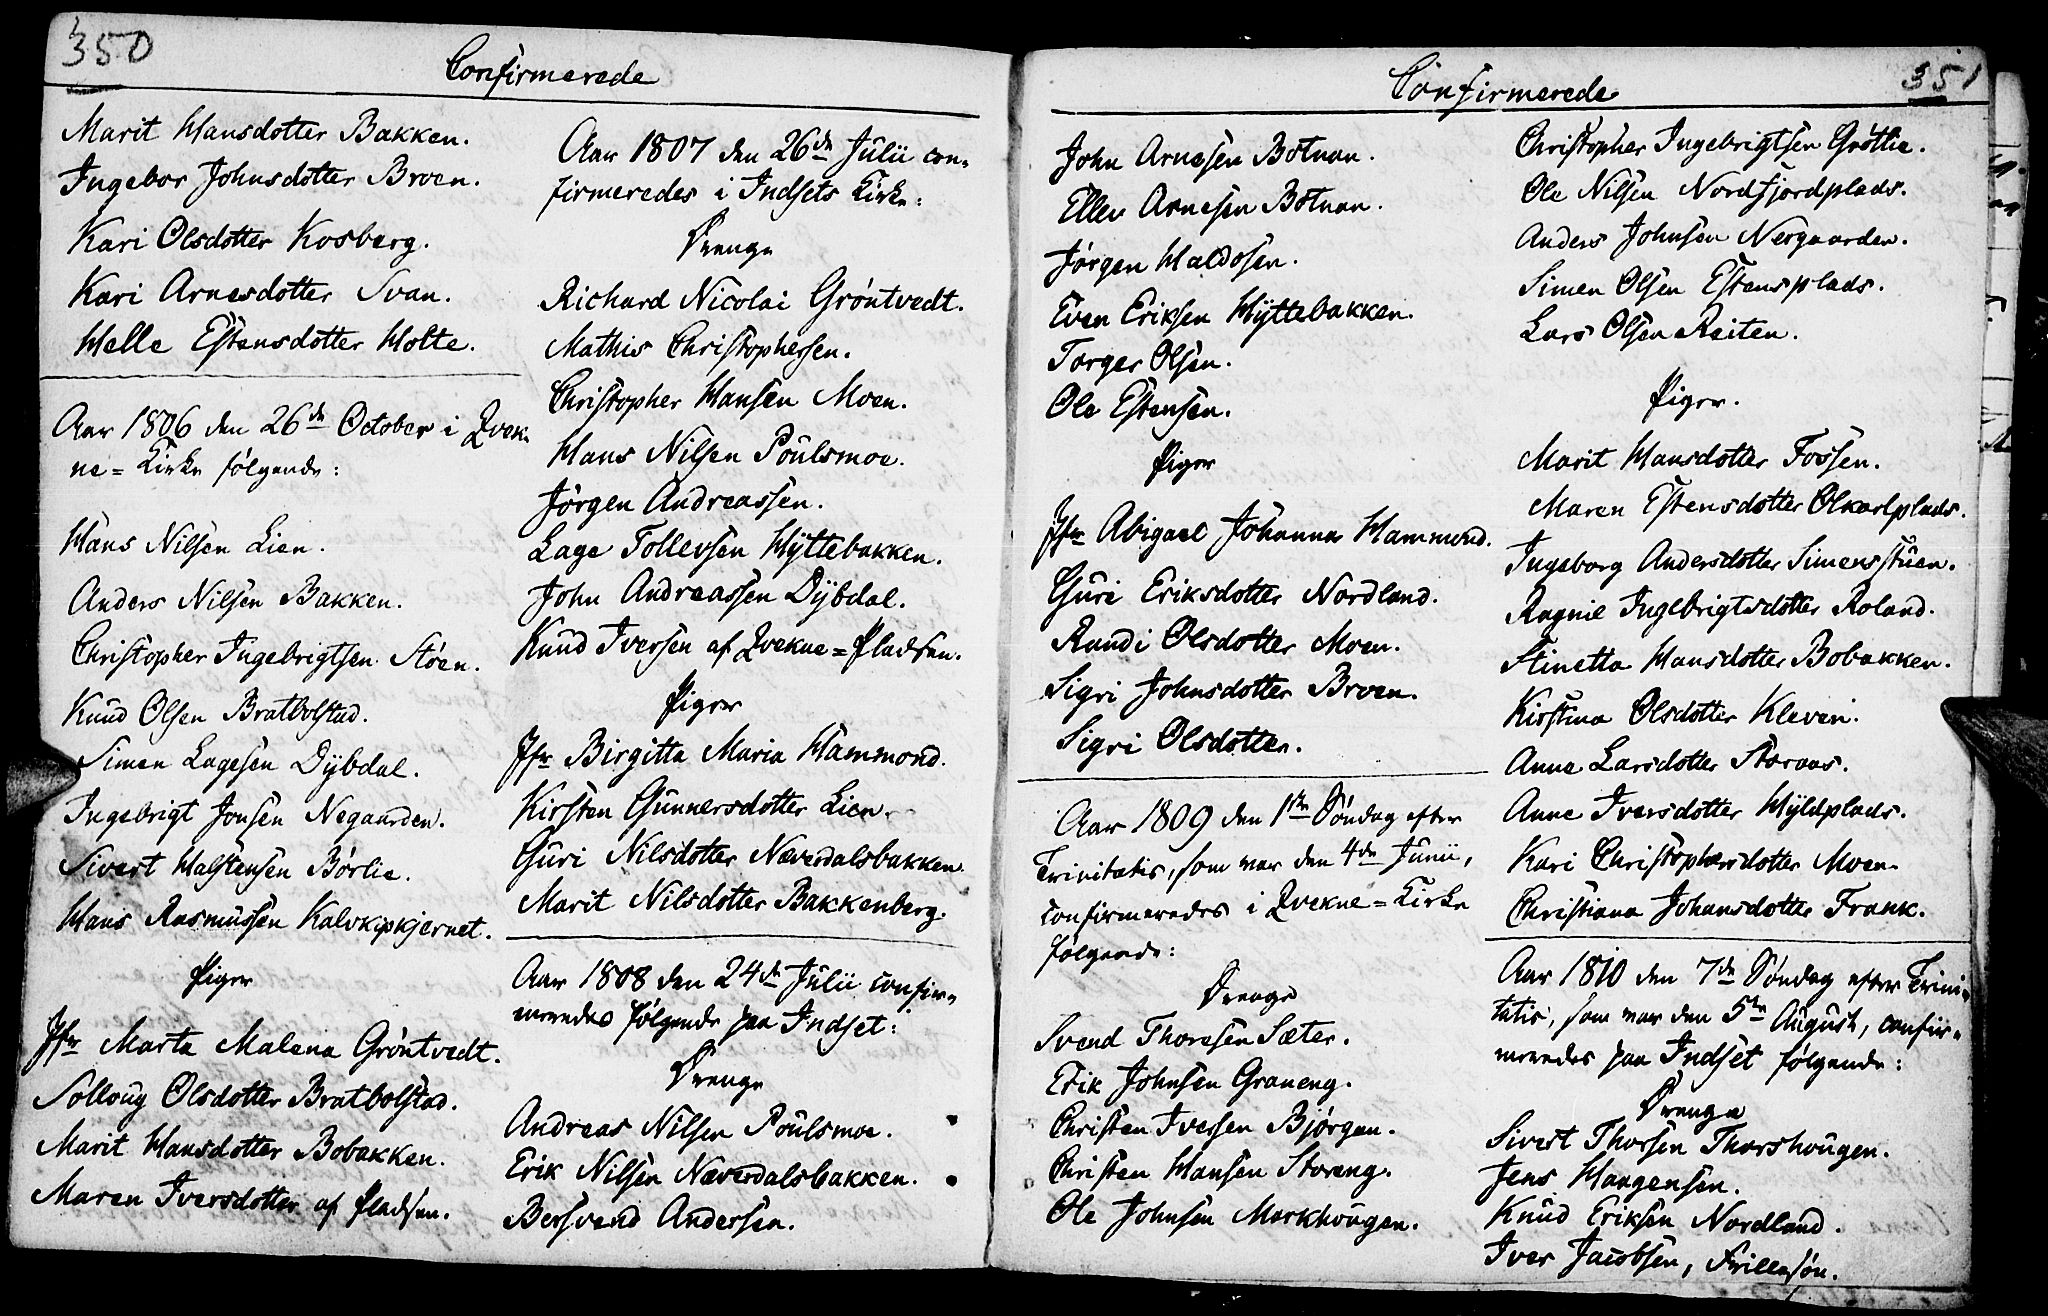 350
Confirmerede
Marit Hansdotter Bakken.
Ingebor Johnsdotter Broen.
Kari Olsdotter Kosberg.
Kari Arnesdotter Svan.
Helle Estensdotter Holte.
Aar 1806 den 26de October i Qvek-
ne=Kirke følgende:
Hans Nilsen Lien.
Anders Nilsen Bakken.
Christopher Ingebrigtsen Støen.
Knud Olsen Bratbolstad.
Simen Lagesen Dÿbdal.
Ingebrigt Jonsen Negaarden.
Sivert Halstensen Børlie.
Hans Rasmussen Kalvkipkjernet.
Piger
Jfr Marta Malena Grøntvedt.
Solloug Olsdotter Bratbolstad.
Marit Hansdotter Bobakken.
Maren Iversdotter af Pladsen.
Aar 1807 den 26de Julii con-
firmeredes i Indsets Kirke:
Drenge
Richard Nicolai Grøntvedt.
Mathis Christophersen.
Christopher Hansen Moen.
Hans Nilsen Poulsmoe.
Jörgen Andreassen.
Lage Tollevsen Hÿttebakken.
John Andreassen Dÿbdal.
Knud Iversen af Qvekne=Pladsen.
Piger
Jfr Birgitta Maria Hammond.
Kirsten Gunnersdotter Lien.
Guri Nilsdotter Næverdalsbakken.
Marit Nilsdotter Bakkenberg.
Aar 1808 den 24de Julii confir-
meredes følgende paa Indset:
Drenge
Andreas Nilsen Poulsmoe.
Erik Nilsen Næverdalsbakken.
Bersvend Andersen.
351
Confirmerede
John Arnesen Botnan.
Ellev Arnesen Botnan.
Jørgen Haldosen.
Even Eriksen Hÿttebakken.
Torger Olsen.
Ole Estensen.
Piger
Jfr Abigael Johanna Hammond.
Guri Eriksdotter Nordland.
Randi Olsdotter Moen.
Sigri Johnsdotter Broen.
Sigri Olsdotter.
Aar 1809 den 1ste Søndag efter
Trinitatis, som var den 4de Junii,
confirmeredes i Qvekne=Kirke
følgende:
Drenge
Svend Thoresen Sæter.
Erik Johnsen Graneng.
Christen Iversen Bjørgen.
Christen Hansen Storeng.
Ole Johnsen Markhougen.
Christopher Ingebrigtsen Grøttie.
Ole Nilsen Nordfjordplads.
Anders Johnsen Nergaarden.
Simen Olsen Estensplads.
Lars Olsen Reiten.
Piger.
Marit Hansdotter Fossen.
Maren Estensdotter Olkarlplads.
Ingeborg Andersdotter Simensstuen.
Ragnil Ingebrigtsdotter Roland.
Stinetta Hansdotter Bobakken.
Kirstina Olsdotter Kleven.
Anne Larsdotter Storaas.
Anne Iversdotter Hÿldplads.
Kari Christophersdotter Moen.
Christiana Johansdotter Frank.
Aar 1810 den 7de Søndag efter Trini-
tatis, som var den 5te August, confir-
meredes paa Indset følgende:
Drenge
Sivert Thorsen Thorshougen.
Jens Haagensen.
Knud Eriksen Nordland.
Iver Jacobsen, Frillesøn.